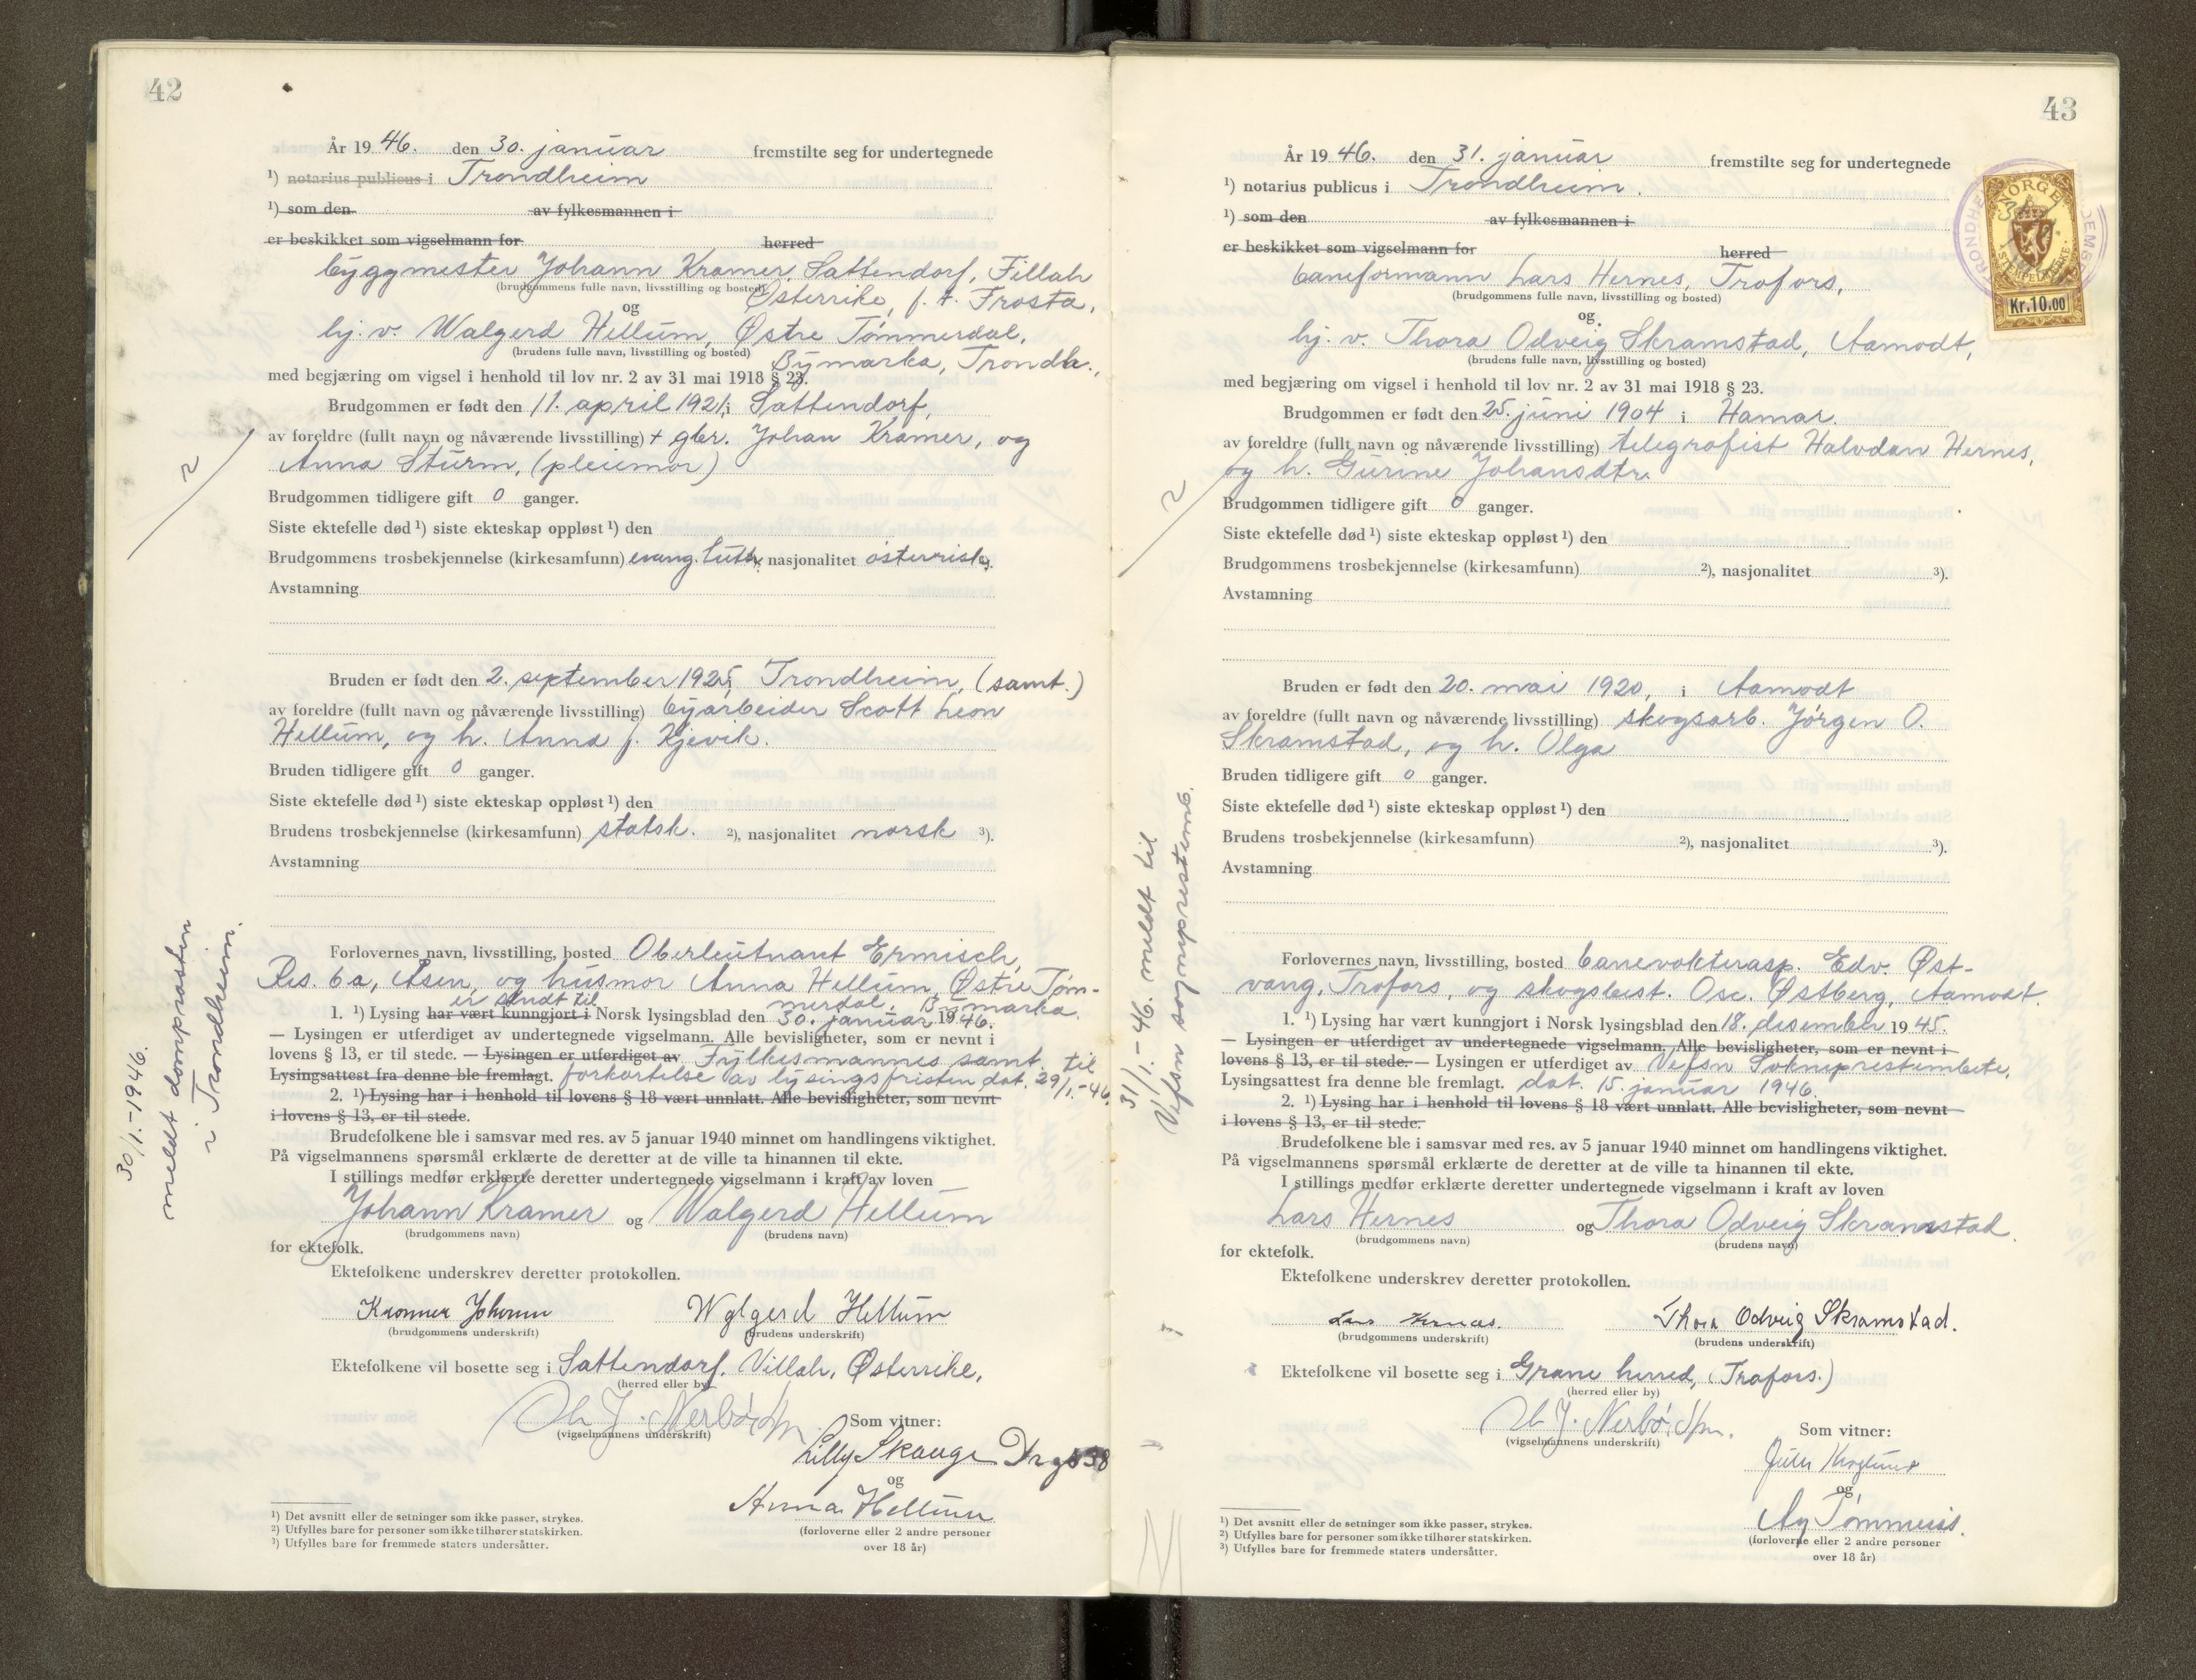 42
År 1946. den 30. januar fremstilte seg for undertegnede
1) notarius publicus i Trondheim
1) som den av fylkesmannen i
er beskikket som vigselmann for herred
byggmester Johann Kramer, Sattendorf, Fillah
(brudgommens fulle navn, livsstilling og bosted)
Østerrike, f. t. Frosta,
og
hj. v. Walgerd Hellum, Østre Tømmerdal,
(brudens fulle navn, livsstilling og bosted)
Bymarka, Trondh.,
med begjæring om vigsel i henhold til lov nr. 2 av 31 mai 1918 § 23.
Brudgommen er født den 11. april 1921, i Sattendorf,
av foreldre (fullt navn og nåværende livsstilling) + gbr. Johan Kramer, og
Anna Sturm, (pleiemor)
Brudgommen tidligere gift 0 ganger.
Siste ektefelle død 1) siste ekteskap oppløst 1) den
Brudgommens trosbekjennelse (kirkesamfunn) evang. luth. nasjonalitet østerrisk 3).
Avstamning
Bruden er født den 2. september 1925, i Trondheim, (samt.)
av foreldre (fullt navn og nåværende livsstilling) byarbeider Scott Leon
Hellum, og h. Anna f. Kjevik.
Bruden tidligere gift 0 ganger.
Siste ektefelle død 1) siste ekteskap oppløst 1) den
Brudens trosbekjennelse (kirkesamfunn) statsk. 2), nasjonalitet norsk 3).
Avstamning
Forlovernes navn, livsstilling, bosted Oberleutnant Ermisch,
Res. 6a, Åsen, og husmor Anna Hellum, Østre Tøm-
er sendt til merdal, Bymarka.
1. 1) Lysing har vært kunngjort i Norsk lysingsblad den 30. januar 1946.
— Lysingen er utferdiget av undertegnede vigselmann. Alle bevisligheter, som er nevnt i
lovens § 13, er til stede. — Lysingen er utferdiget av Fylkesmannes samt. til
Lysingsattest fra denne ble fremlagt. forkortelse av lysingsfristen dat. 29/1.-46.
2. 1) Lysing har i henhold til lovens § 18 vært unnlatt. Alle bevisligheter, som nevnt
i lovens § 13, er til stede.
Brudefolkene ble i samsvar med res. av 5 januar 1940 minnet om handlingens viktighet.
På vigselmannens spørsmål erklærte de deretter at de ville ta hinannen til ekte.
I stillings medfør erklærte deretter undertegnede vigselmann i kraft av loven
Johann Kramer og Walgerd Hellum
(brudgommens navn) (brudens navn)
for ektefolk.
Ektefolkene underskrev deretter protokollen.
Kramer Johann Walgerd Hellum
(brudgommens underskrift) (brudens underskrift)
Ektefolkene vil bosette seg i Sattendorf, Villah, Østerrike,
(herred eller by)
Nerbø
(vigselmannens underskrift)
Som vitner:
Lilly Skauge
og
Anna Hellum
(forloverne eller 2 andre personer
over 18 år)
1) Det avsnitt eller de setninger som ikke passer, strykes.
2) Utfylles bare for personer som ikke tilhører statskirken.
3) Utfylles bare for fremmede staters undersåtter.
2
30/1.-1946.
meldt domprosten
i Trondheim.
43
År 1946. den 31. januar fremstilte seg for undertegnede
1) notarius publicus i Trondheim.
1) som den av fylkesmannen i
er beskikket som vigselmann for herred
baneformann Lars Hernes, Trofors,
(brudgommens fulle navn, livsstilling og bosted)
og
hj. v. Thora Odveig Skramstad, Aamodt,
(brudens fulle navn, livsstilling og bosted)
med begjæring om vigsel i henhold til lov nr. 2 av 31 mai 1918 § 23.
Brudgommen er født den 25. juni 1904 i Hamar.
av foreldre (fullt navn og nåværende livsstilling) telegrafist Halvdan Hernes,
og h. Gurine Johansdtr.
Brudgommen tidligere gift 0 ganger.
Siste ektefelle død 1) siste ekteskap oppløst 1) den
Brudgommens trosbekjennelse (kirkesamfunn) 2), nasjonalitet 3).
Avstamning
Bruden er født den 20. mai 1920, i Aamodt
av foreldre (fullt navn og nåværende livsstilling) skogsarb. Jørgen O.
Skramstad, og h. Olga
Bruden tidligere gift 0 ganger.
Siste ektefelle død 1) siste ekteskap oppløst 1) den
Brudens trosbekjennelse (kirkesamfunn) 2), nasjonalitet 3).
Avstamning
Forlovernes navn, livsstilling, bosted banevokterasp. Edv. Øst-
vang, Trofors, og skogsbest. Osc. Østberg, Aamodt.
1. 1) Lysing har vært kunngjort i Norsk lysingsblad den 18. desember 1945.
— Lysingen er utferdiget av undertegnede vigselmann. Alle bevisligheter, som er nevnt i
lovens § 13, er til stede. — Lysingen er utferdiget av Vefsn Sokneprestembete.
Lysingsattest fra denne ble fremlagt. dat. 15. januar 1946.
2. 1) Lysing har i henhold til lovens § 18 vært unnlatt. Alle bevisligheter, som nevnt
i lovens § 13, er til stede.
Brudefolkene ble i samsvar med res. av 5 januar 1940 minnet om handlingens viktighet.
På vigselmannens spørsmål erklærte de deretter at de ville ta hinannen til ekte.
I stillings medfør erklærte deretter undertegnede vigselmann i kraft av loven
Lars Hernes og Thora Odveig Skramstad.
(brudgommens navn) (brudens navn)
for ektefolk.
Ektefolkene underskrev deretter protokollen.
Lars Hernes. Thora Odveig Skramstad.
(brudgommens underskrift) (brudens underskrift)
Ektefolkene vil bosette seg i Grane herred, (Trofors.)
(herred eller by)
Nerbø
(vigselmannens underskrift)
Som vitner:
og
(forloverne eller 2 andre personer
over 18 år)
1) Det avsnitt eller de setninger som ikke passer, strykes.
2) Utfylles bare for personer som ikke tilhører statskirken.
3) Utfylles bare for fremmede staters undersåtter.
2
31/1.-46. meldt til
Vefsn sogneprestemb.
NORGE
STEMPELMERKE
Kr.10.00